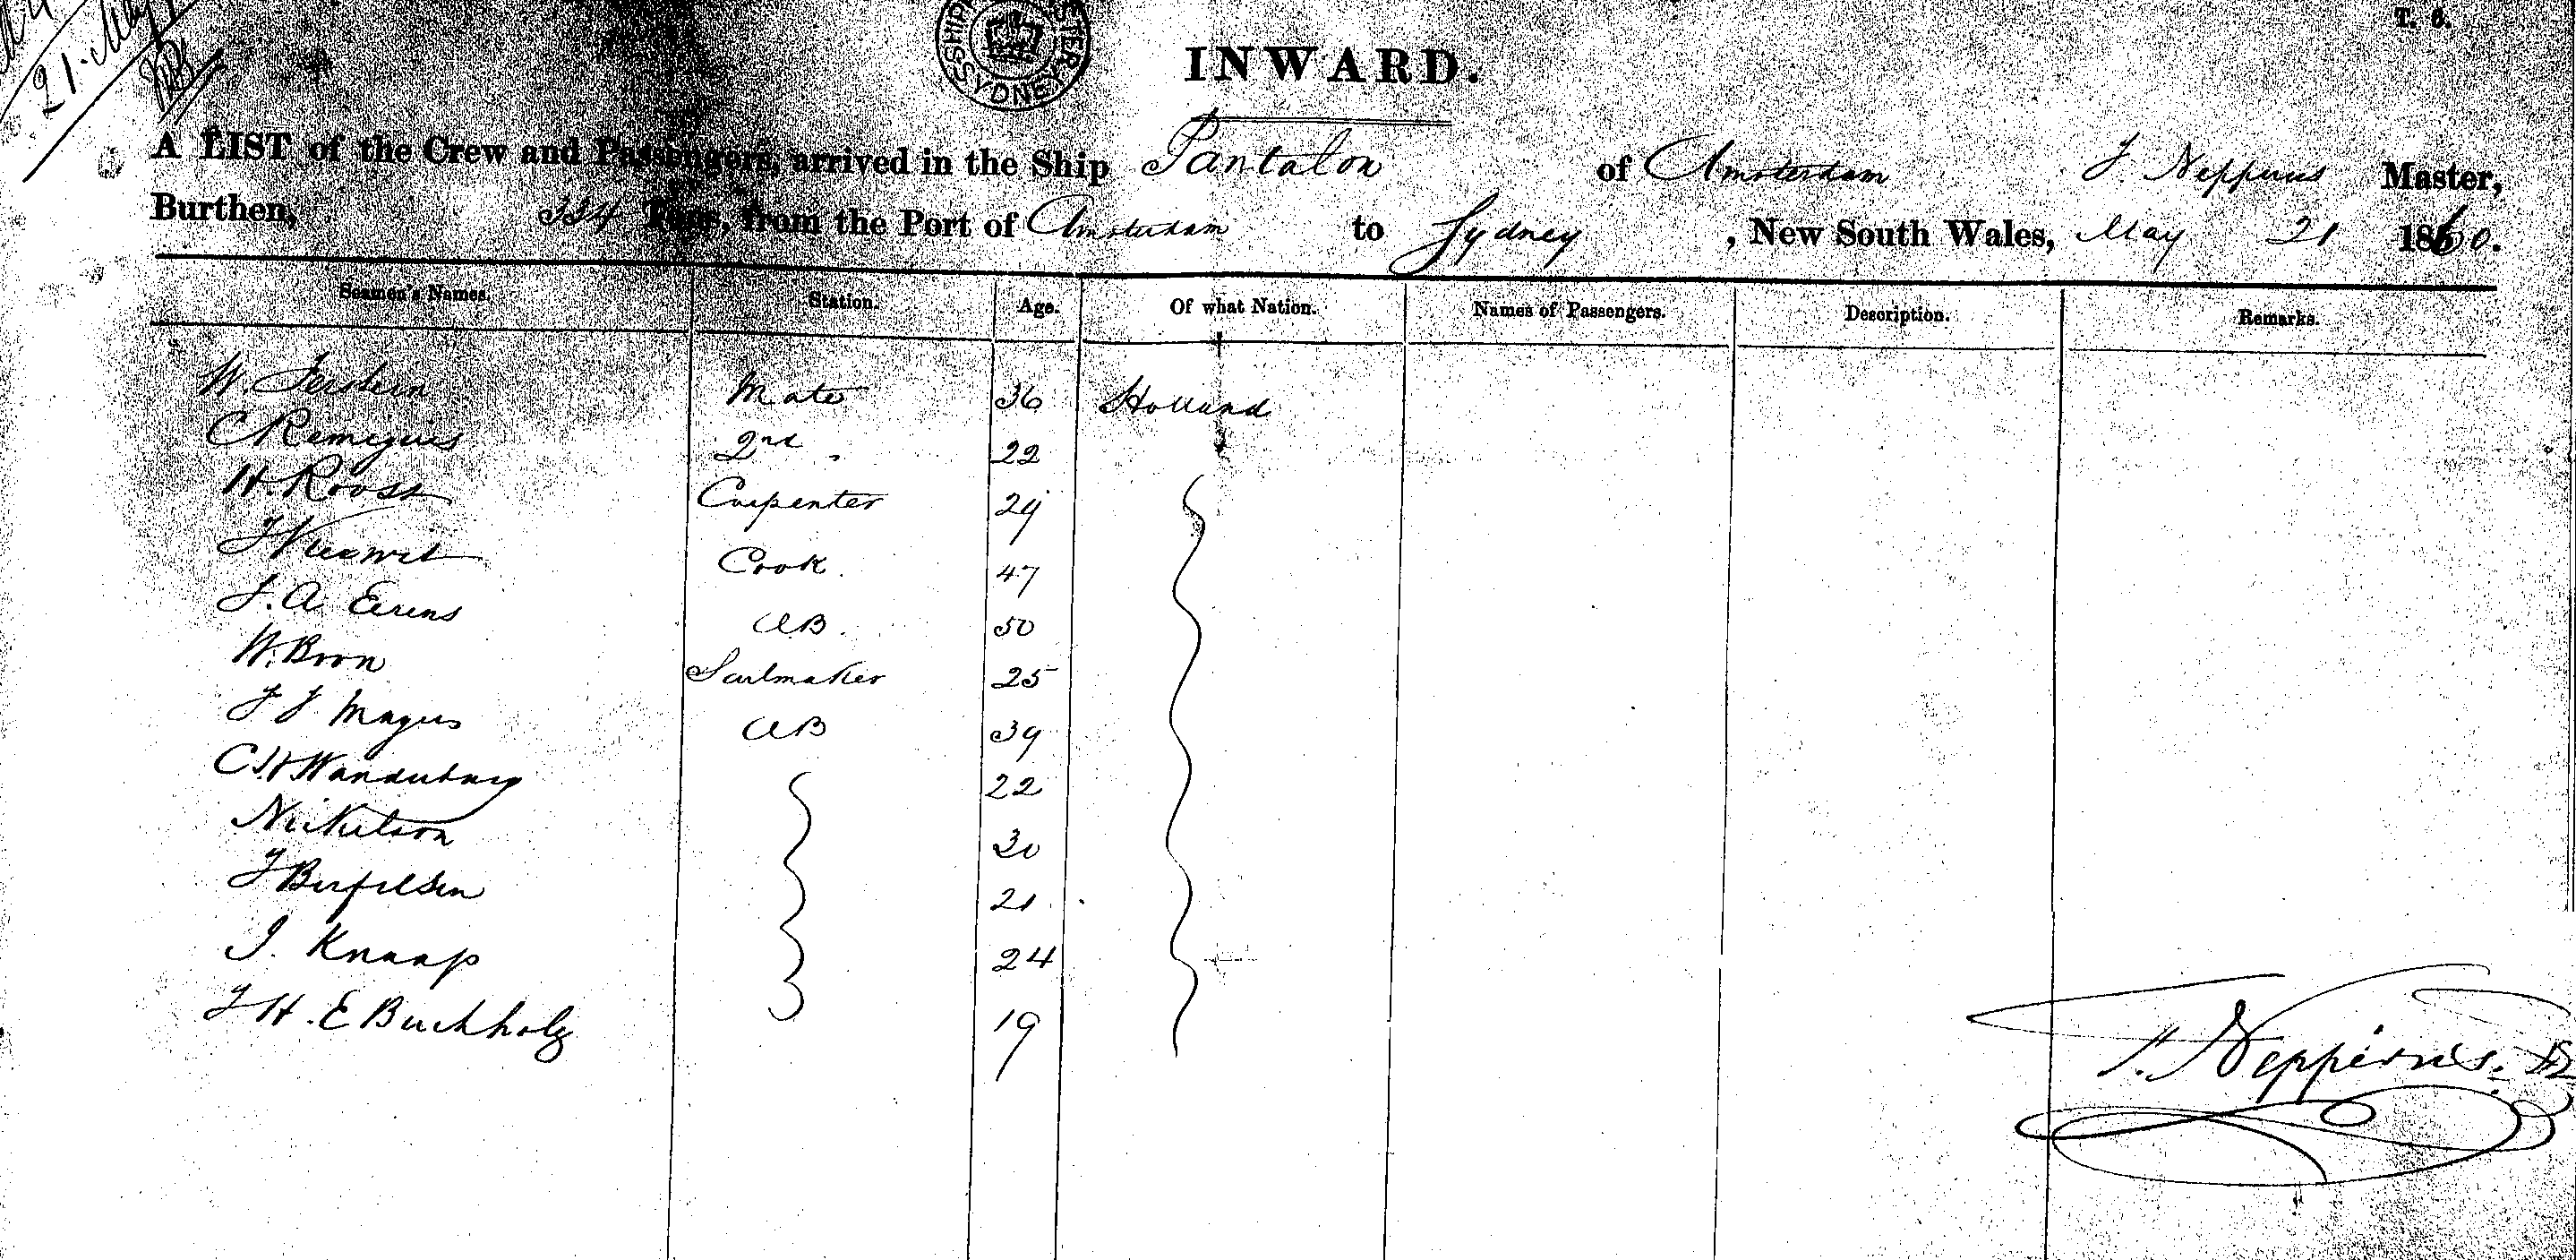 21. May
T. 6.
SHIPP STER SYDNEY
INWARD.
A LIST of the Crew and Passengers, arrived in the Ship Pantalon of Amsterdam J. Neppérus Master,
Burthen, 334 Tons, from the Port of Amsterdam to Sydney, New South Wales, May 21 1860.
Seamen's Names. Station. Age. Of what Nation. Names of Passengers. Description. Remarks.
W. Mate 36 Holland
C Remeguis 2nd " 22
H. Roos Carpenter 24
J Cook 47
J. A. Eerens AB 50
W. Boon Sailmaker 25
J J Magus AB 39
C H Wandenburg 22
Nikelson 30
J 21
J. Knaap 24
J H. E Buchholz 19
J. Neppérus.